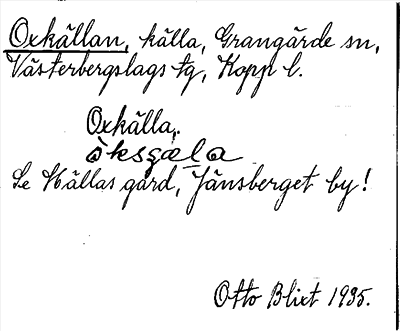 Oxkällan, källa, Grangärde sn,
Västerbergslags tg, Kopp l.
Oxkälla,
òksgæla
Se Källas gård, Jänsberget by!
Otto Blixt 1935.